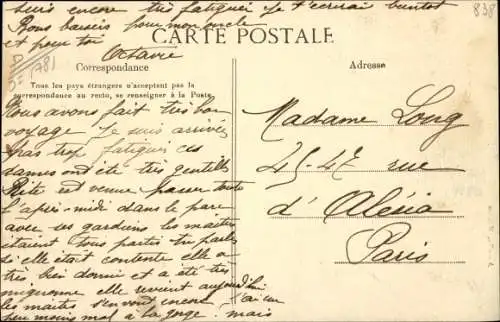 suis encore très fatiguée je t'écrirai bientot
Bons baisers pour mon oncle
et pour toi
Octavie
CARTE POSTALE
Correspondance
Adresse
Tous les pays étrangers n'acceptent pas la
correspondance au recto, se renseigner à la Poste
Nous avons fait très bon
voyage Je suis arrivée
pas trop fatiguée ces
dames ont été très gentilles
est venue passer toute
l'après-midi dans le parc
avec ses gardiens les maîtres
étaient tous partis tu parles
si elle était contente elle a
très bien dormi et a été très
mignonne elle revient aujourd'hui
les maîtres s'en vont encore j'ai un
peu moins mal à la gorge mais
Madame Long
45-47 rue
d'Alésia
Paris
838
781